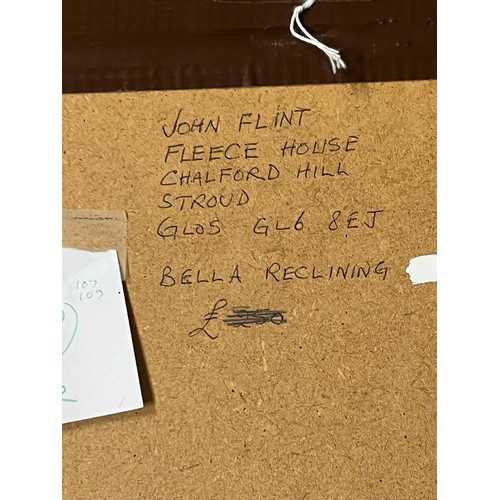 JOHN FLINT
FLEECE HOUSE
CHALFORD HILL
STROUD
GLOS GL6 8EJ
BELLA RECLINING
£
109
109